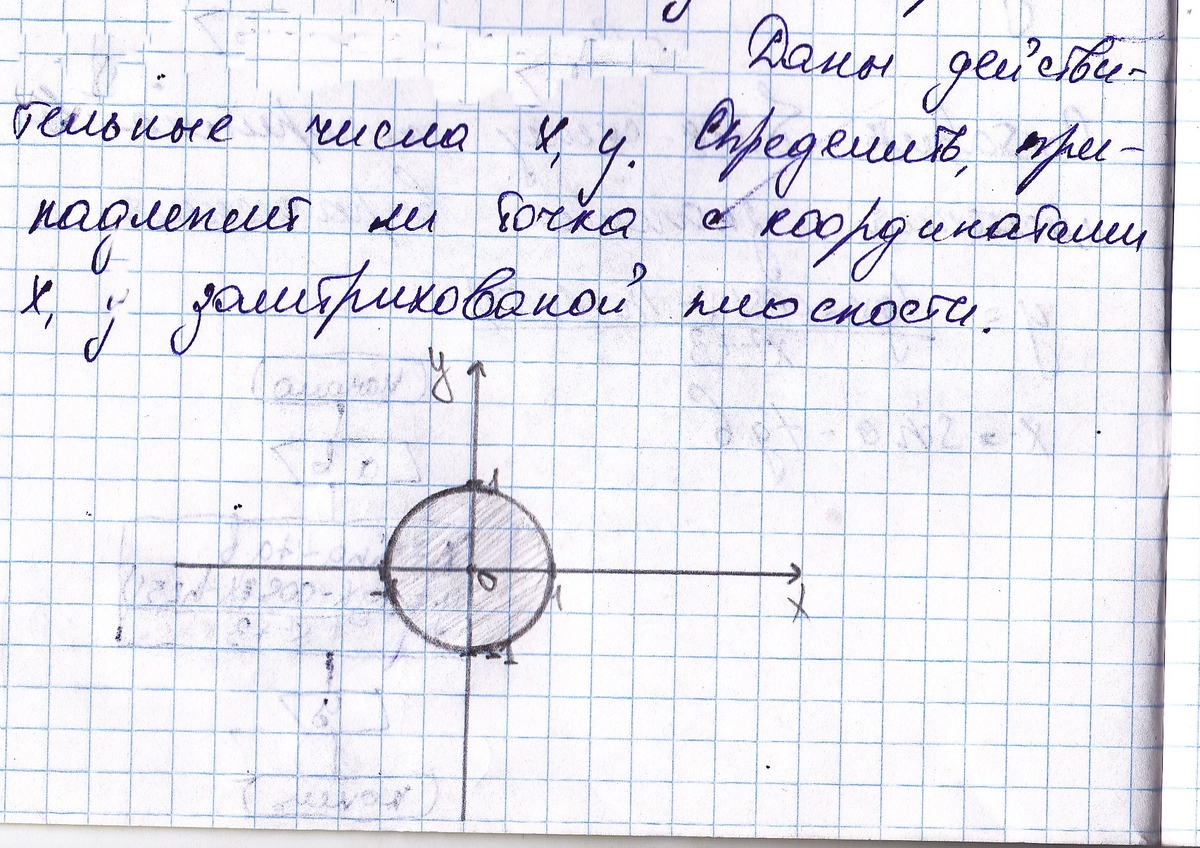 Даны действи-
тельные числа x, y. Определить, при-
надлежит ли точка с координатами
x, y заштрихованой плоскости.
y
1
-1 0 1
x
-1